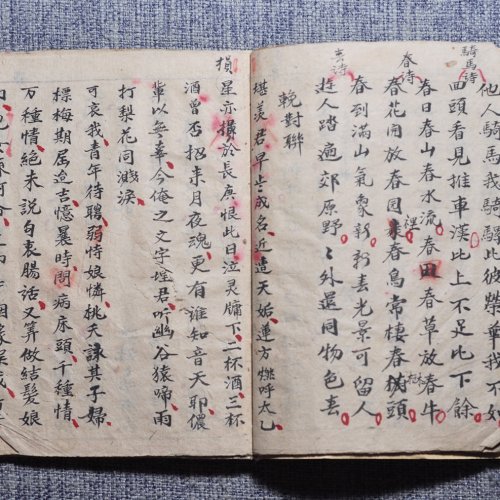 騎馬詩
他人騎馬我騎驢比彼榮華我不如
回頭看見推車漢比上不足比下餘
春詩
春日春山春水流春田春草放春牛
春花開放春園裡春鳥常棲春樹頭
春到滿山氣象新新去光景可留人
遊人踏遍郊原野〻外選同物色去
輓對聯
堪羨君早些成名近造天姤蓬方燃呼太乙
損星亦於長庚恨此日泣靈牗下二杯酒三杯
酒曾否招來月夜魂更有誰知音天耶儂
輩以無辜今俺之文字煌君听幽谷猿啼雨
打梨花同濺淚
可哀我青年待聘弱恃娘憐桃夭詠其子婦
標梅期屆迨吉憶曩時問病床頭千種情
萬種情絕未說句衷腸話又算做結髮娘